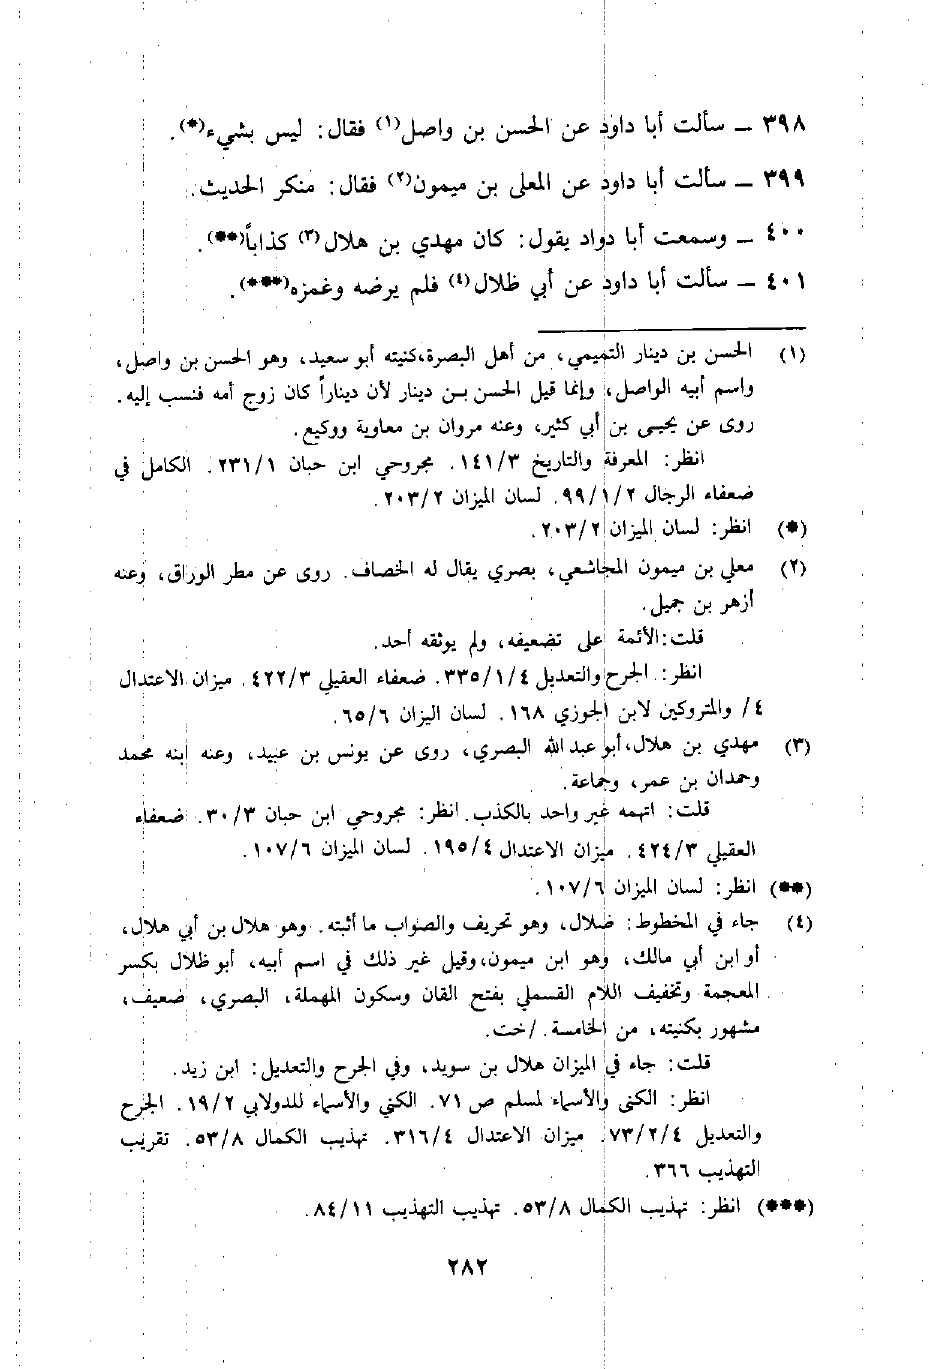 ٣٩٨ ــ سألت أبا داود عن الحسن بن واصل(١) فقال: ليس بشيء(*).
٣٩٩ ــ سألت أبا داود عن المعلى بن ميمون(٢) فقال: منكر الحديث.
٤٠٠ ــ وسمعت أبا دواد يقول: كان مهدي بن هلال(٣) كذاباً(**).
٤٠١ ــ سألت أبا داود عن أبي ظلال(٤) فلم يرضه وغمزه(***).
(١) الحسن بن دينار التميمي، من أهل البصرة،كنيته أبو سعيد، وهو الحسن بن واصل،
واسم أبيه الواصل، وإنما قيل الحسن بن دينار لأن ديناراً كان زوج أمه فنسب إليه.
روى عن يحيى بن أبي كثير، وعنه مروان بن معاوية ووكيع.
انظر: المعرفة والتاريخ ١٤١/٣. مجروحي ابن حبان ٢٣١/١. الكامل في
ضعفاء الرجال ٩٩/١/٢. لسان الميزان ٢٠٣/٢.
(*) انظر: لسان الميزان ٢٠٣/٢.
(٢) معلى بن ميمون المجاشعي، بصري يقال له الخصاف. روى عن مطر الوراق، وعنه
أزهر بن جميل.
قلت:الأئمة على تضعيفه، ولم يوثقه أحد.
انظر: الجرح والتعديل ٣٣٥/١/٤. ضعفاء العقيلي ٤٢٢/٣. ميزان الاعتدال
٤/ والمتروكين لابن الجوزي ١٦٨. لسان اليزان ٦٥/٦.
(٣) مهدي بن هلال،أبو عبد الله البصري، روى عن يونس بن عبيد، وعنه ابنه محمد
وحمدان بن عمر، وجماعة.
قلت: اتهمه غير واحد بالكذب. انظر: مجروحي ابن حبان ٣٠/٣. ضعفاء
العقيلي ٤٢٤/٣. ميزان الاعتدال ١٩٥/٤. لسان الميزان ١٠٧/٦.
(**) انظر: لسان الميزان ١٠٧/٦.
(٤) جاء في المخطوط: ضلال، وهو تحريف والصواب ما أثبته. وهو هلال بن أبي هلال،
أو ابن أبي مالك، وهو ابن ميمون،وقيل غير ذلك في اسم أبيه، أبو ظلال بكسر
المعجمة وتخفيف اللام القسملي بفتح القان وسكون المهملة، البصري، ضعيف،
مشهور بكنيته، من الخامسة. /خت.
قلت: جاء في الميزان هلال بن سويد، وفي الجرح والتعديل: ابن زيد.
انظر: الكنى والأسماء لمسلم ص ٧١. الكني والأسماء للدولابي ١٩/٢. الجرح
والتعديل ٧٣/٢/٤. ميزان الاعتدال ٣١٦/٤. تهذيب الكمال ٥٣/٨. تقريب
التهذيب ٣٦٦.
(***) انظر: تهذيب الكمال ٥٣/٨. تهذيب التهذيب ٨٤/١١.
٢٨٢